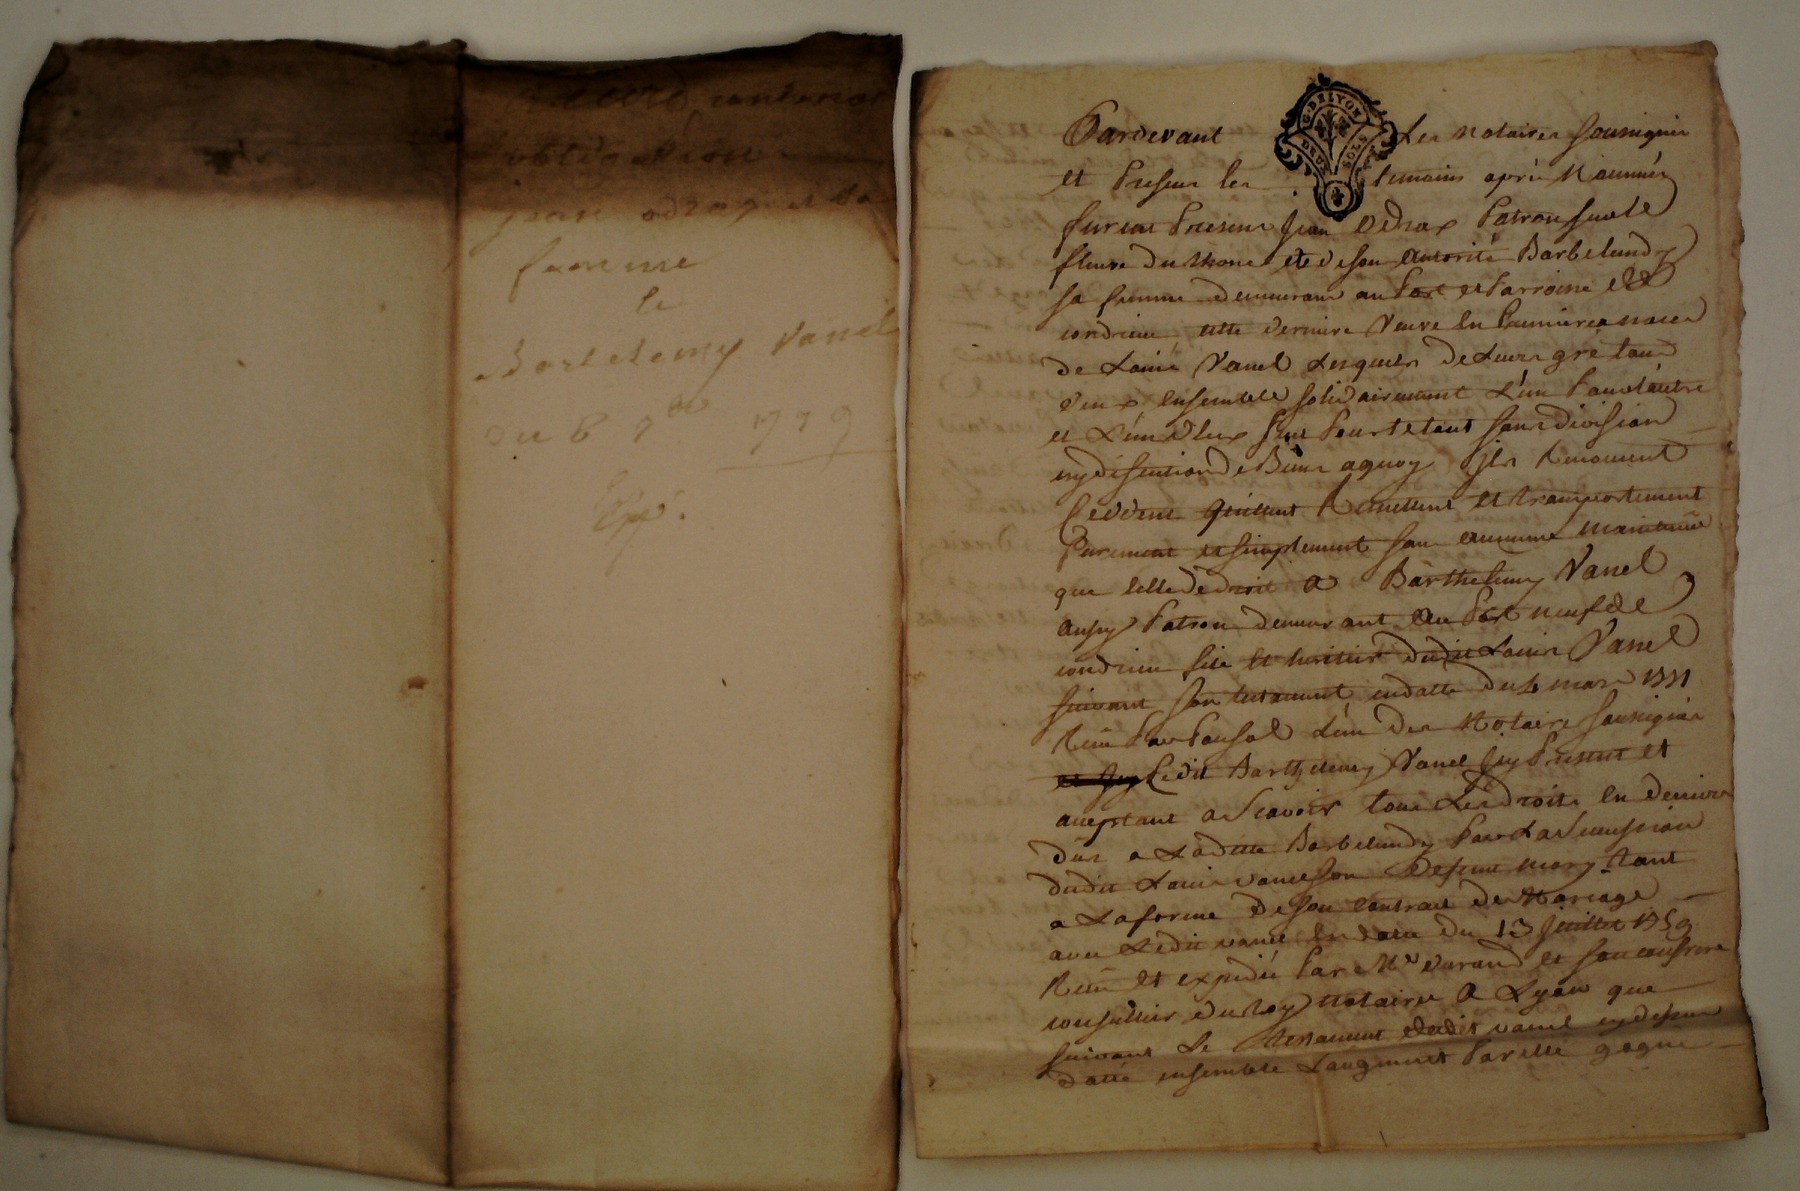 obligation
jean odrax et sa
femme
le
Barthelemy Vanel
du 6 7bre 1779
Exp.
G. DE LYON
DEUX SOLS
Pardevant Les Notaires soussignés
et Presens les temoins après Nommés
furent Presens Jean odrax Patron sur le
fleuve du Rhone et de son autorité Barbe
sa femme demeurans au Port et Parroisse de
condrieu cette derniere Veuve en Premieres noces
de Louis Vanel Lesquels de Leurs gré tous
deux ensemble solidairement L'un Pour l'autre
et L'un d'Eux seul Pour le tout sans division
ny discution de Biens aquoy ils Renoncent
Cèddent quittent Remettent et transportement
Purement et simplement sans aucune maintenüe
que celle de droit a Barthelemy Vanel
aussy Patron demeurant au Port neuf de
condrieu fils et heritier dudit Louis Vanel
suivant son testament en datte du mars 1771
Reçu Par L'un des Notaires soussignés
Ledit Barthelemy Vanel icy Present et
acceptant a Scavoir tous Les droits en deniers
dus a Laditte Barbe Par La Sucession
dudit Louis vanel son defunt mary tant
a La forme de son contrat de Mariage
avec Ledit vanel en datte du 13 juillet 1759
Reçu et expedié Par Me durand et son confrere
conseillers du Roy notaires a Lyon que
suivant Le testament dudit vanel cy dessus
datté ensemble L'augment Par elle gagné